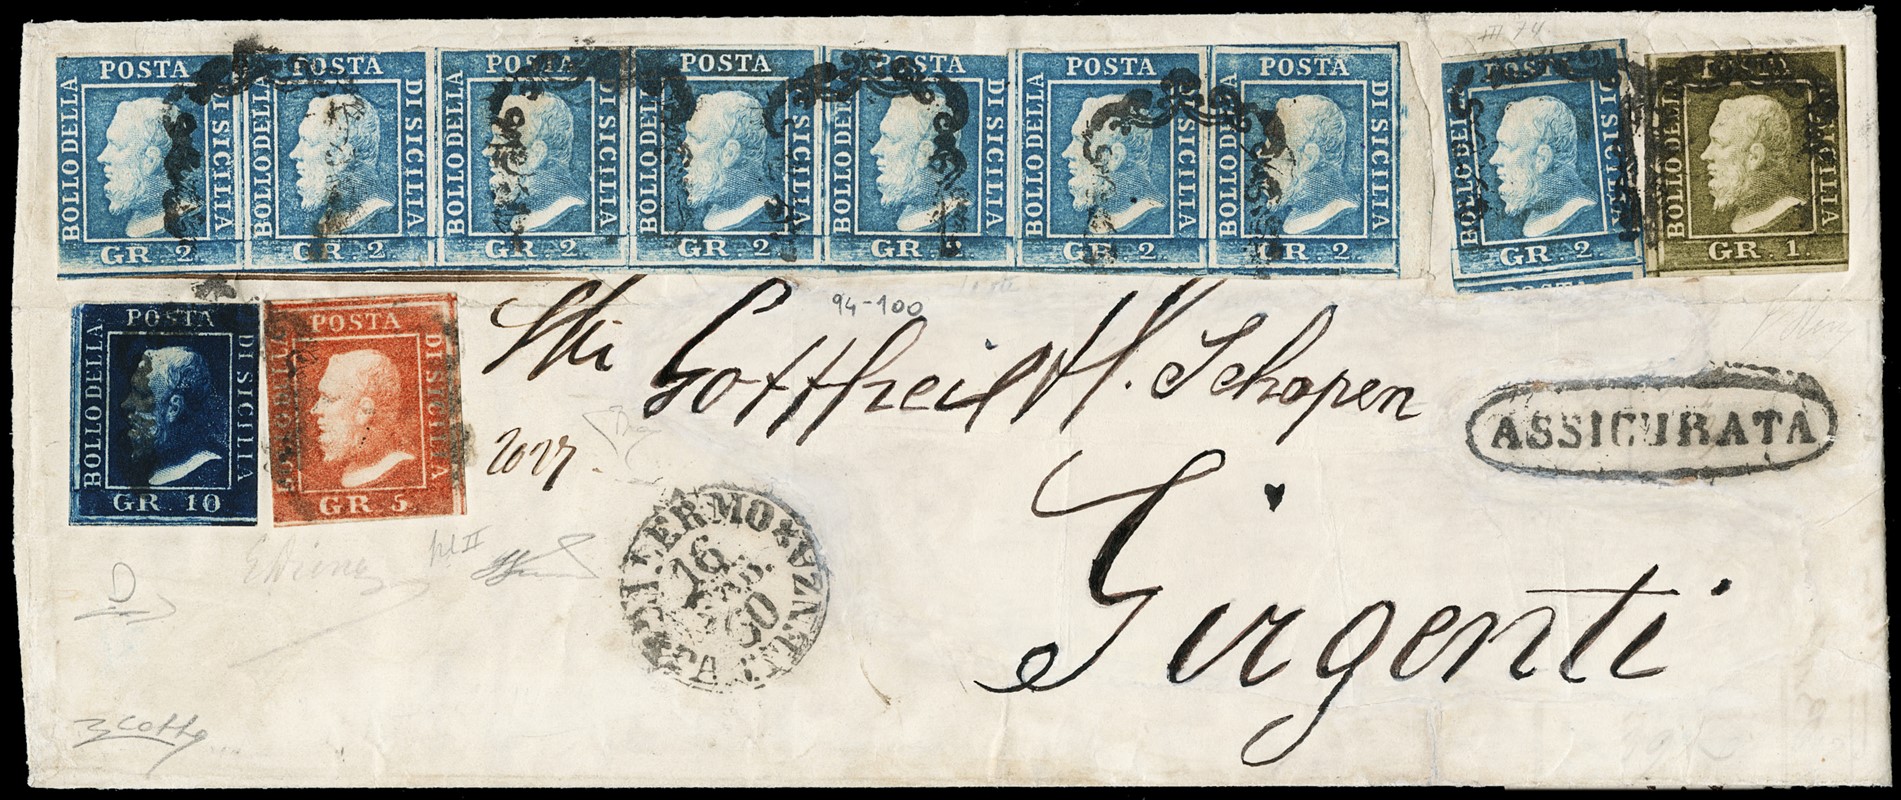 POSTA BOLLO DELLA DI SICILIA GR. 2.
POSTA BOLLO DELLA DI SICILIA GR. 2.
POSTA BOLLO DELLA DI SICILIA GR. 2
POSTA BOLLO DELLA DI SICILIA GR. 2
POSTA BOLLO DELLA DI SICILIA GR. 2
POSTA BOLLO DELLA DI SICILIA GR. 2.
POSTA BOLLO DELLA DI SICILIA GR. 2.
III 74
POSTA BOLLO DELLA DI SICILIA GR. 2.
POSTA BOLLO DELLA DI SICILIA GR. 1.
POSTA BOLLO DELLA DI SICILIA GR. 10
POSTA BOLLO DELLA DI SICILIA GR. 5.
94-100
Gottheil H. Schopen
2027.
ASSICURATA
Girgenti
PALERMO PARTENZA
16
60
pl II
EDiena
D